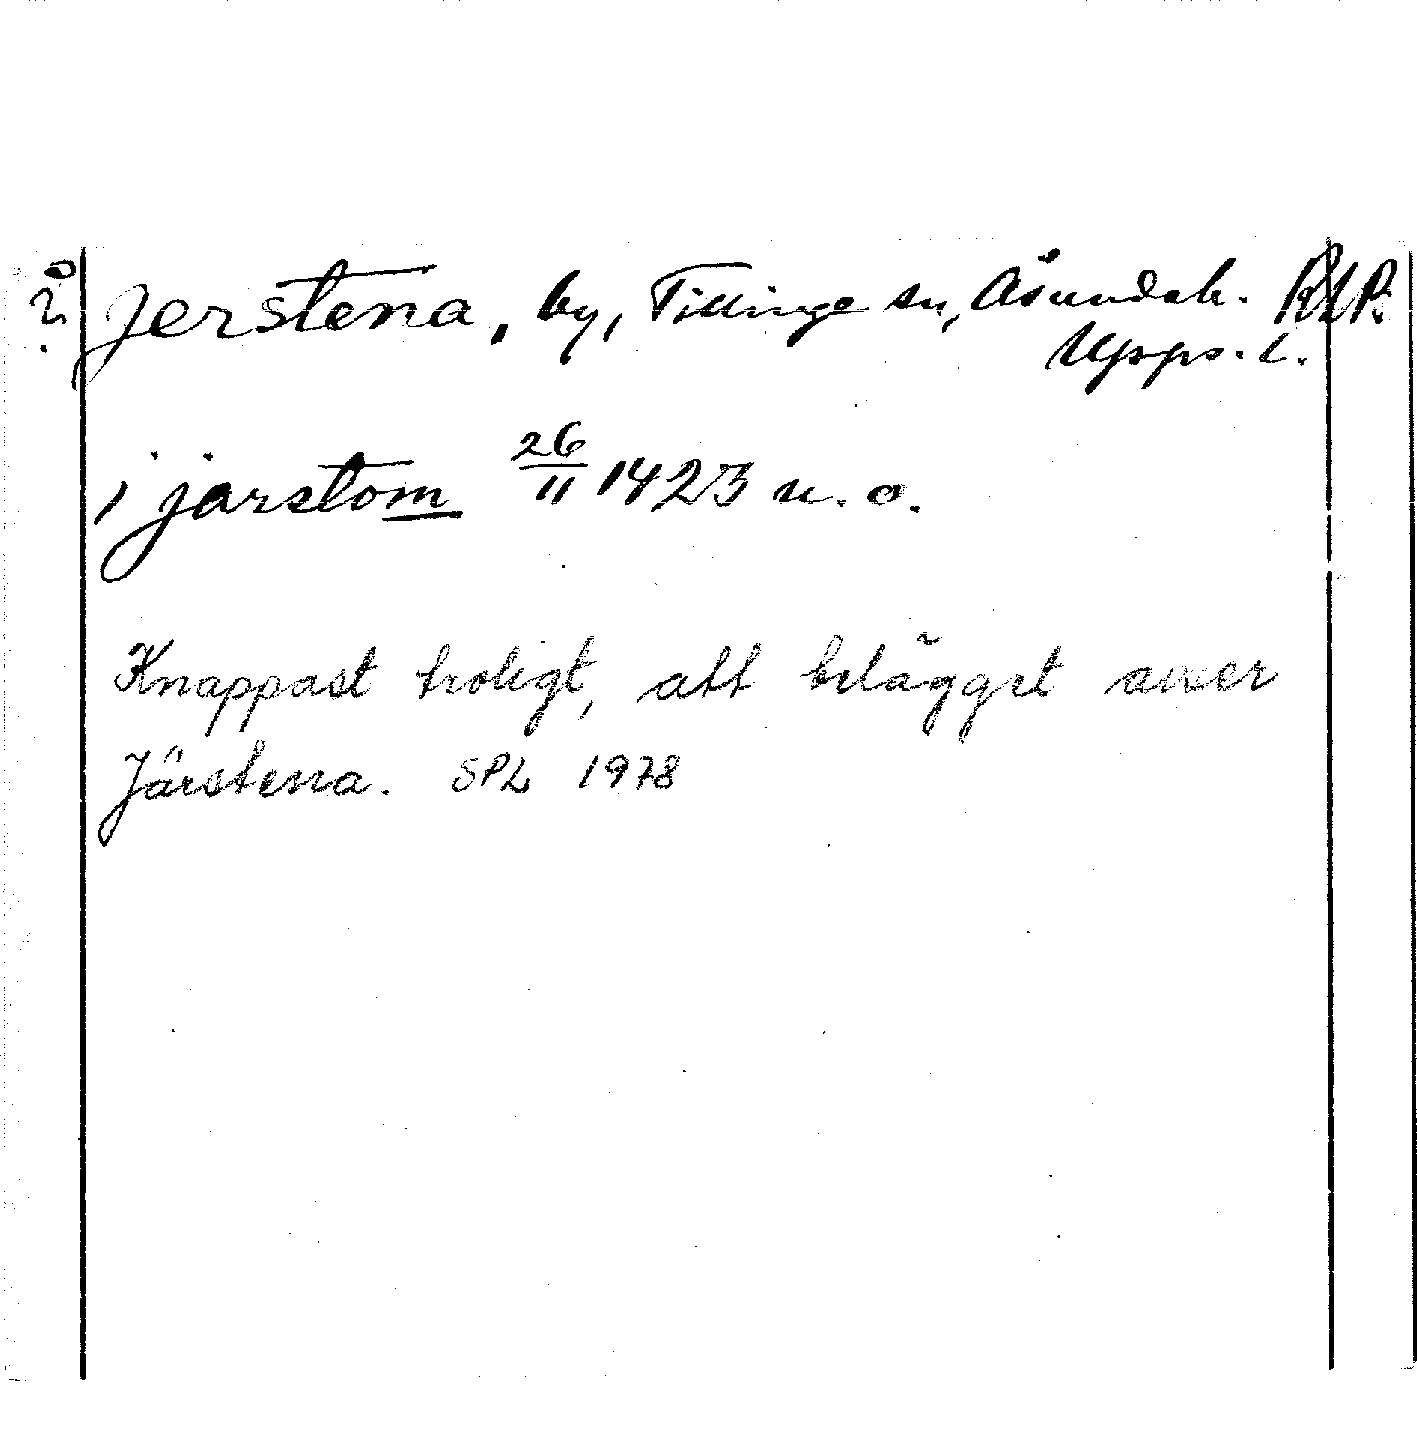 ?
Jerstena, by, Tillinge sn, Åsundah. RAP.
Upps. l.
i jarstom 26/11 1423 u. o.
Knappast troligt, att belägget avser
Järstena. SPL 1978